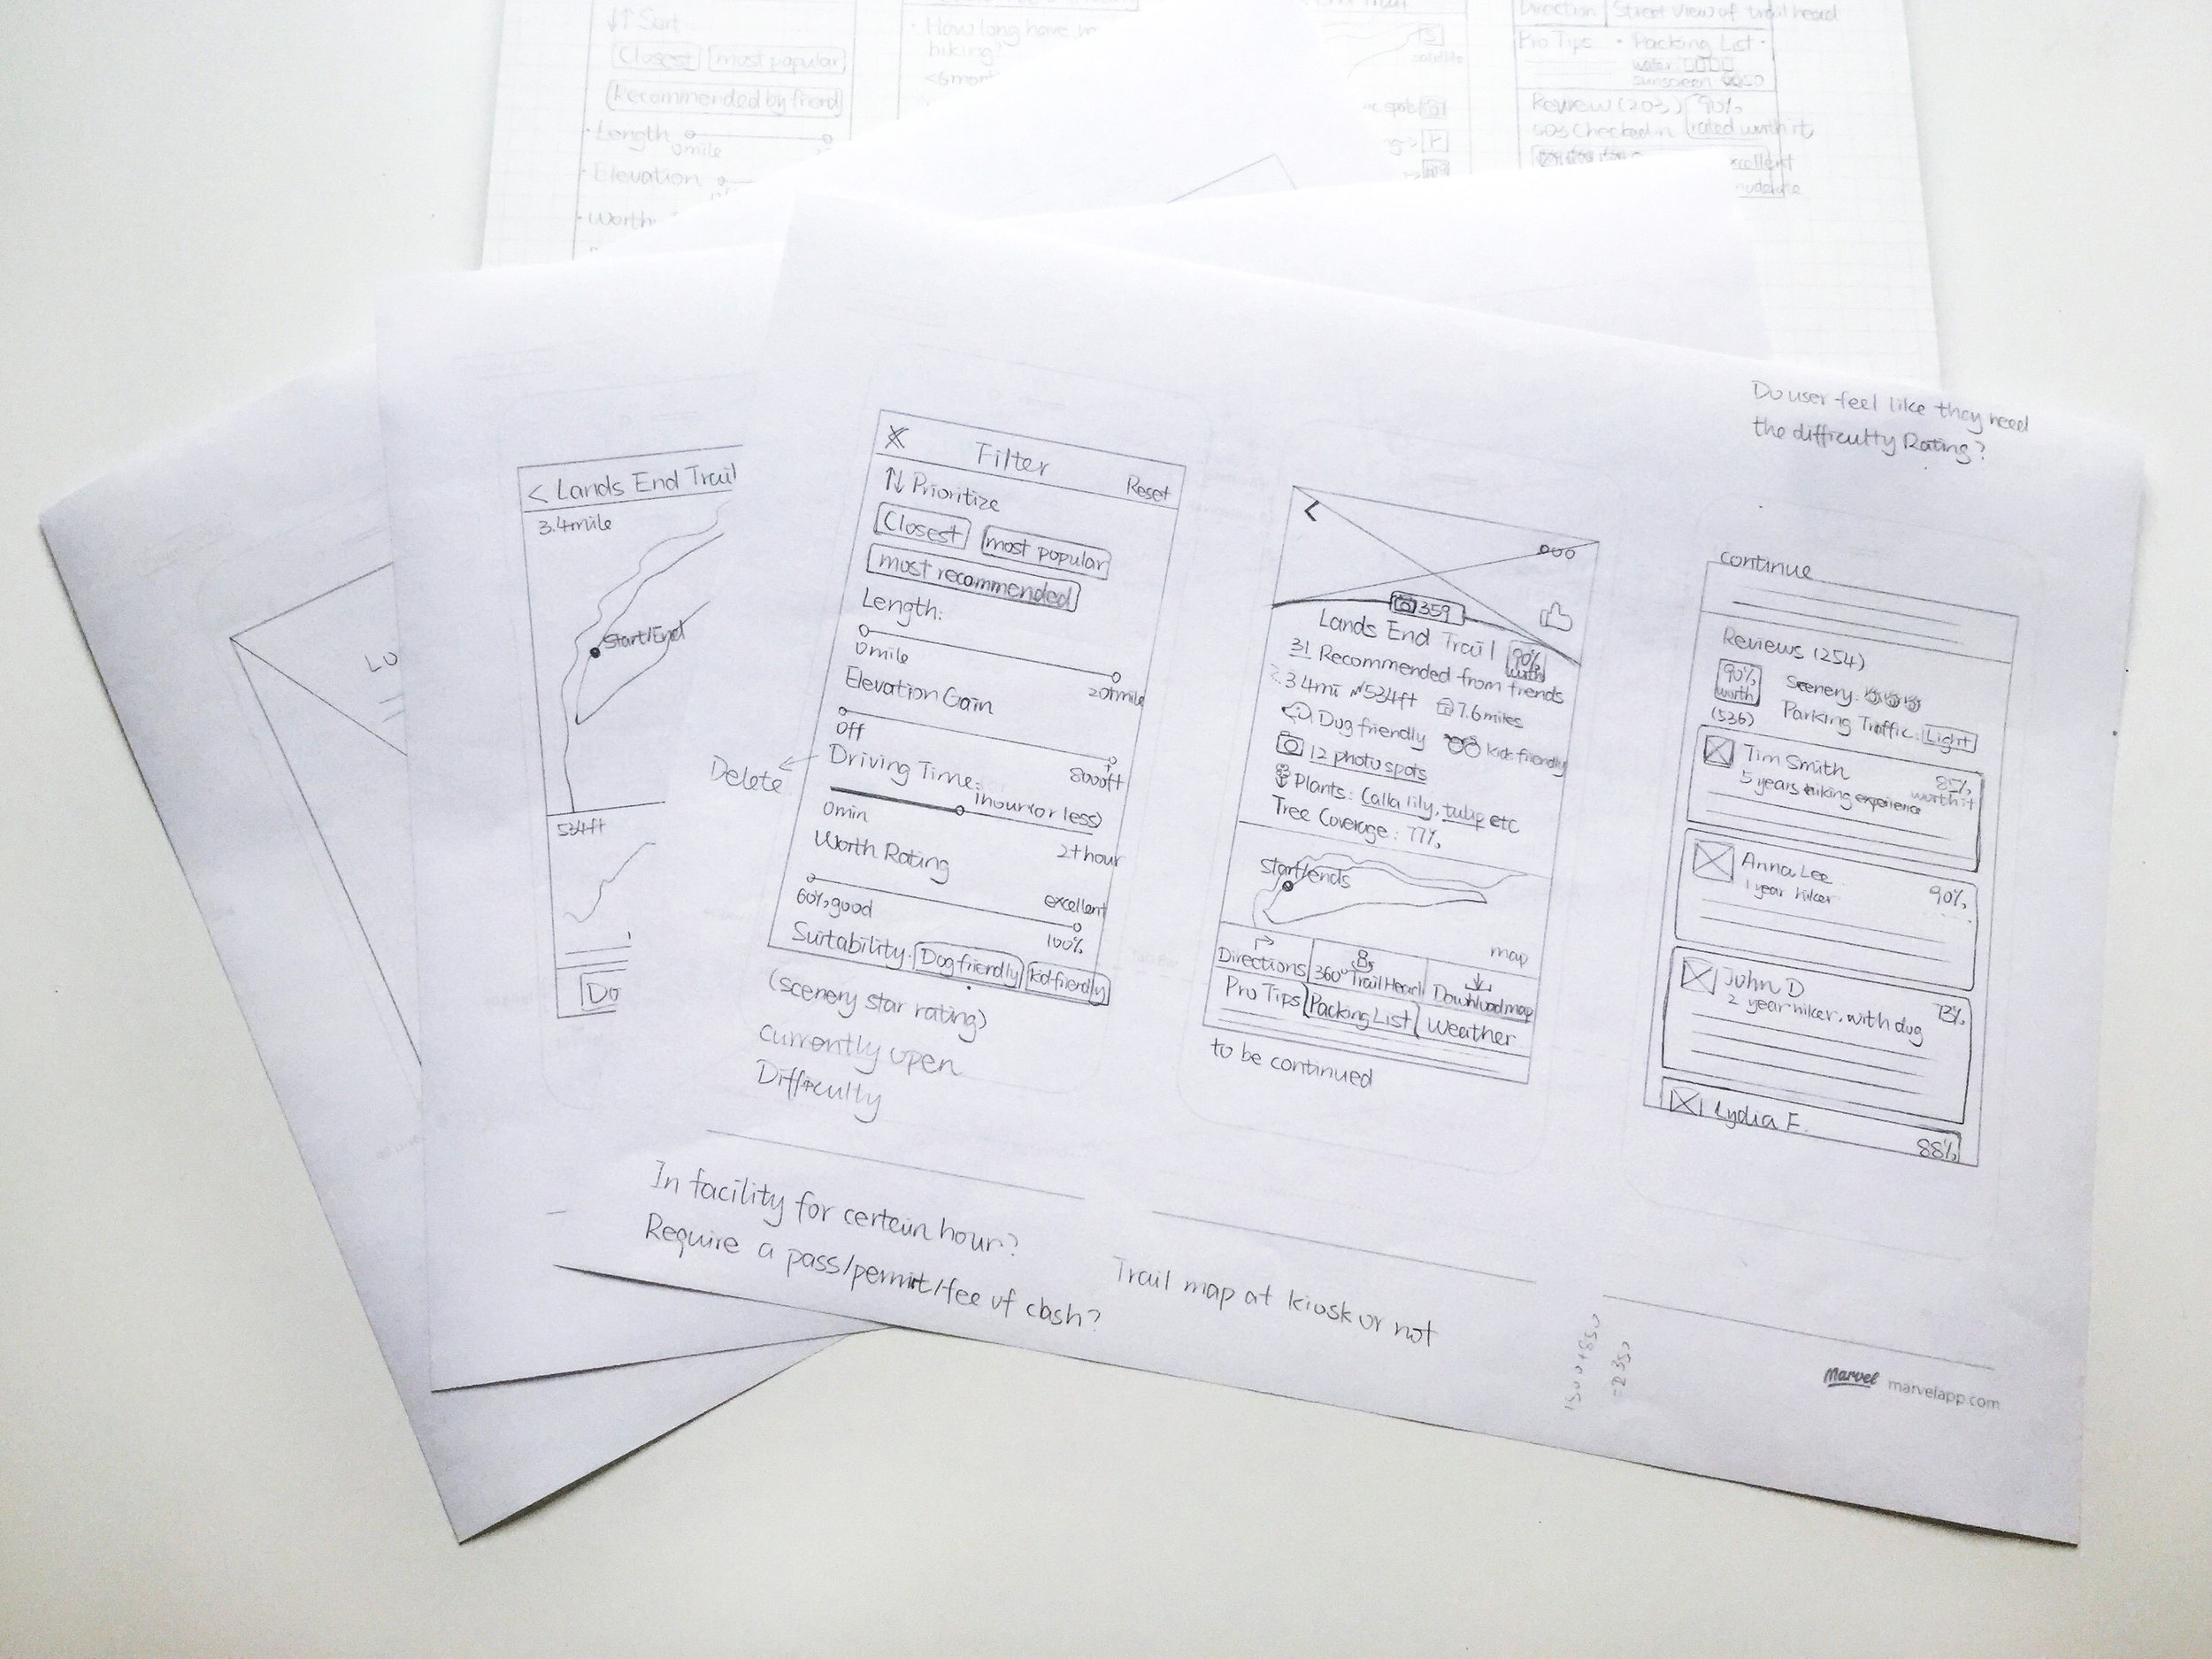 ↓↑ Sort
Closest most popular
Recommended by friend
· Length
0mile
· Elevation
· Worth
· How long have
hiking?
Direction Street View of trail head
Pro Tips · Packing List ·
water
sunscreen
Review (203) 90%
503 Checked in rated worth it
excellent
moderate
Do user feel like they need
the difficulty Rating?
< Lands End Trail
3.4mile
Start/End
534ft
X Filter Reset
↑↓ Prioritize
Closest most popular
most recommended
Length:
0mile
20+mile
Elevation Gain
Off
8000ft
Delete
Driving Time:
1hour(or less)
0min
2+hour
Worth Rating
60%good
excellent
100%
Suitability: Dog friendly kid friendly
(scenery star rating)
Currently open
Difficulty
<
ooo
359
Lands End Trail 90% worth
31 Recommended from friends
3.4mi 534ft 7.6miles
Dog friendly kids friendly
12 photo spots
Plants: Calla lily, tulip etc
Tree Coverage: 77%
start/ends
map
Directions 360° Trail Head Download map
Pro Tips Packing List Weather
to be continued
continue
Reviews (254)
90% worth
(536)
Scenery:
Parking Traffic: Light
Tim Smith 85%
5 years hiking experience worth it
Anna Lee 90%
1 year hiker
John D 73%
2 year hiker, with dog
Lydia F. 88%
In facility for certain hour?
Require a pass/permit/fee of cash?
Trail map at kiosk or not
1500+850
=2350
Marvel marvelapp.com